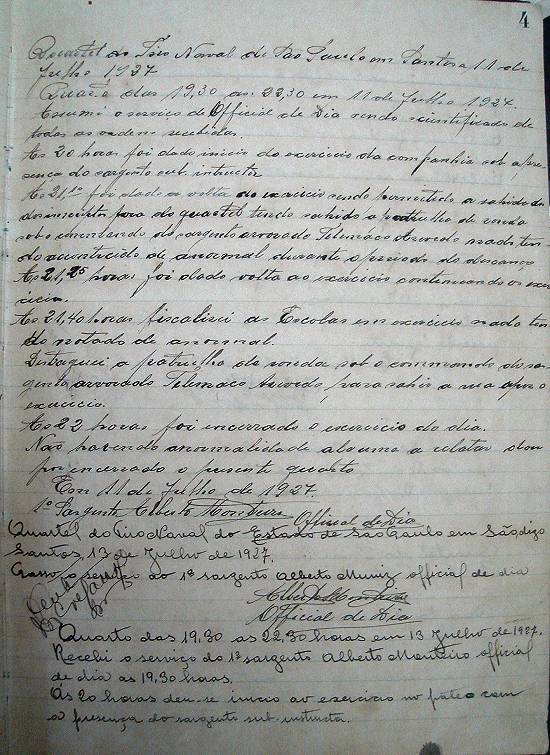 4
Quartel do Tiro Naval de São Paulo em Santos, 11 de
Julho 1927
Quarto das 19,30 as 22,30 em 11 de Julho 1927.
Assumi o serviço de Official de Dia sendo scientificado de
todas as ordens recebidas.
As 20 horas foi dado inicio do exercicio da companhia sob a pre-
sença do sargento sub. instructor
As 21,10 foi dado a volta do exercicio sendo permettido a sahida
dos inscriptos fora do quartel tendo sahido a patrulha de ronda
sob o commando do sargento arvorado Telemaco Azevedo nada ten-
do acontecido de anormal durante o periodo do descanço
As 21,25 horas foi dado volta ao exercicio continuando os exer-
cicios.
As 21,40 horas fiscalisei as Escolas em exercicio nada ten-
do notado de anormal.
Destaquei a patrulha de ronda sob o commando do sar-
gento arvorado Telemaco Azevedo, para sahir a rua apos o
exercicio.
As 22 horas foi encerrado o exercicio do dia.
Não havendo anormalidade alguma a relatar dou
por encerrado o presente quarto
Em 11 de Julho de 1927.
1º Sargento Alberto
Official de Dia
Quartel do Tiro Naval do Estado de São Paulo em São, digo
Santos, 13 de Julho de 1927.
Passo o serviço ao 1º sargento Alberto Muniz official de dia
Official de Dia
Quarto das 19,30 as 22,30 horas em 13 Julho de 1927.
Recebi o serviço do 1º sargento Alberto Monteiro official
de dia as 19,30 horas.
As 20 horas deu-se inicio ao exercicio no pateo com
a presença do sargento sub-instructor.